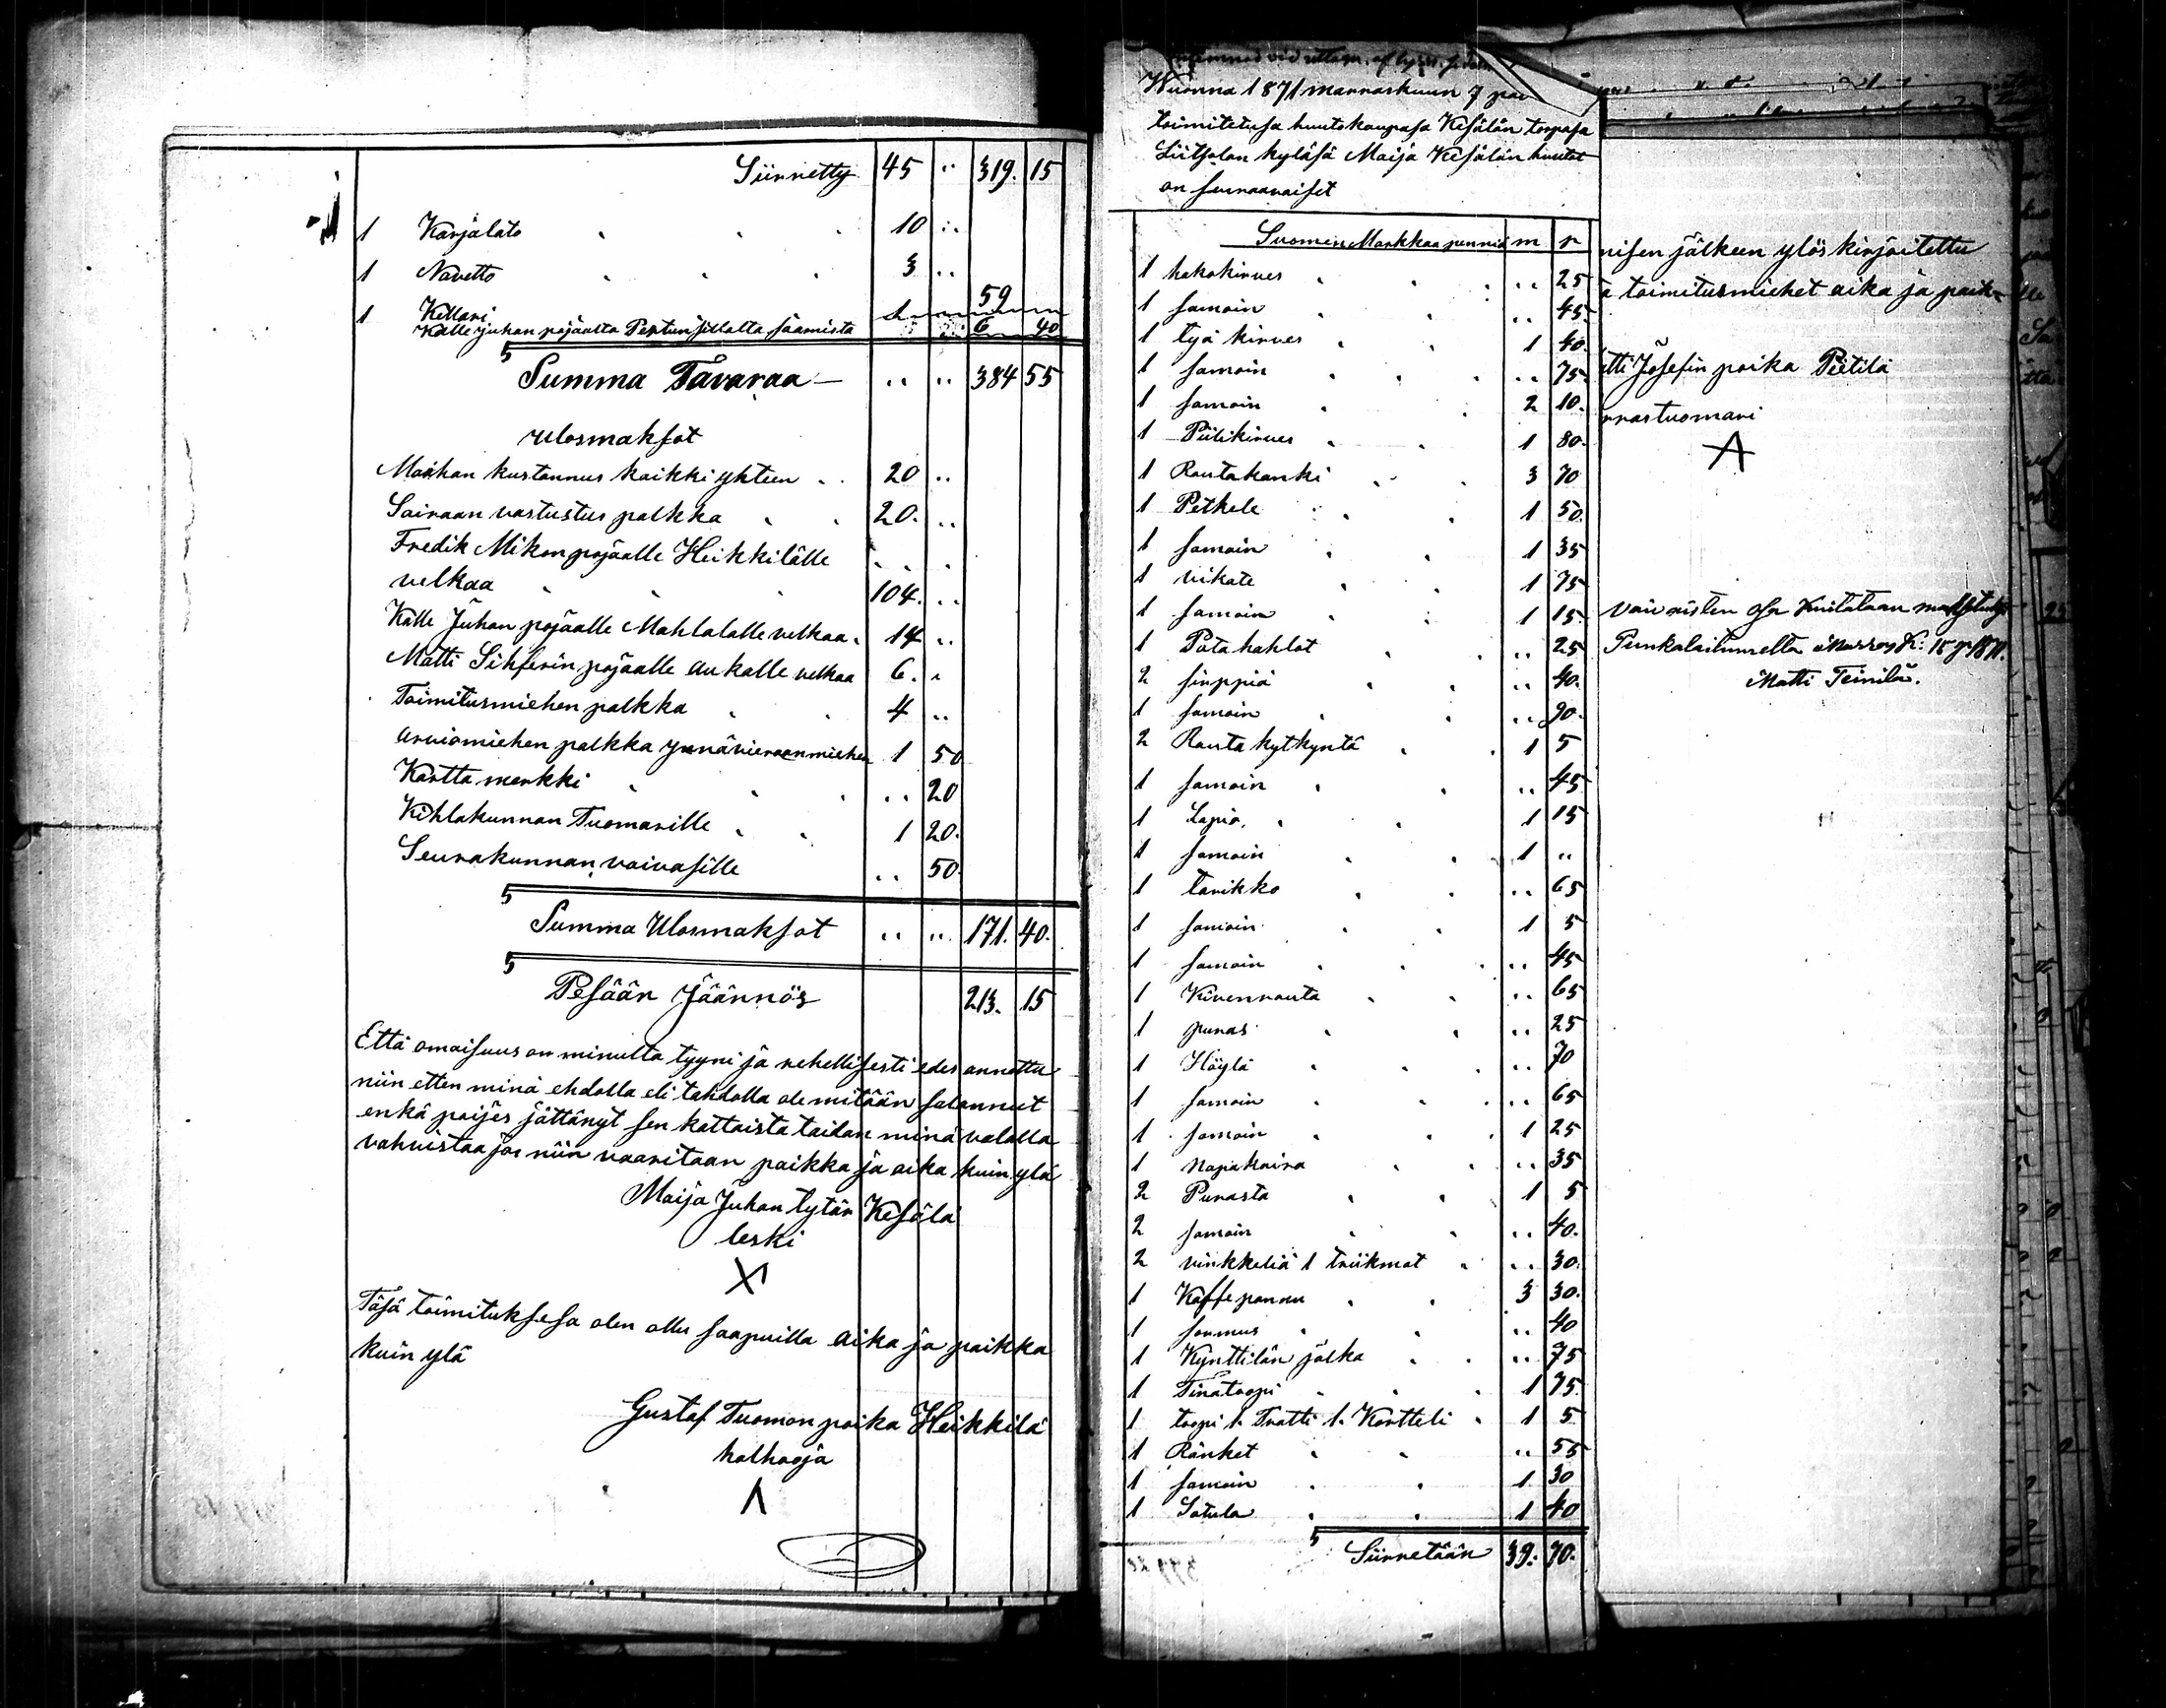 Siirretty 45 .. 319. 15
1 Karjalato 10 ..
1 Navetto 3 ..
1 Kellari 1 59
Kalle Juhan pojaalta Perttun sillalta saamista 6 40
Summa Tavaraa — .. .. 384 55
Ulosmaksot
Maahan kustannus kaikki yhteen .. 20 ..
Sairaan vastustus palkka 20. ..
Fredik Mikon pojaalle Heikkilälle
velkaa 104. ..
Kalle Juhan pojaalle Mahlalalle velkaa 14 ..
Matti Sihferin pojaalle Aukalle velkaa 6. ..
Toimitusmiehen palkka 4 ..
arviomiehen palkka ynnä vieraanmiehen 1 50
Kartta merkki .. 20
Kihlakunnan Tuomarille 1 20.
Seurakunnan vaivasille .. 50.
Summa Ulosmaksot .. .. 171. 40.
Pesään Jäännös 213. 15
Että omaisuus on minulta tyyni ja rehellisesti edes annettu
niin etten minä ehdolla eli tahdolla ole mitään salannut
enkä poijes jättänyt sen kaltaista taidan minä valalla
vahvistaa jos niin vaaritaan paikka ja aika kuin ylä
Maija Juhan tytär Kesälä
leski
X
Täsä toimituksesa olen ollu saapuilla aika ja paikka
kuin ylä
Gustaf Tuomon poika Heikkilä
holhooja
Wuonna 1871 marraskuun 7
toimitetusa huutokaupasa Kesälän torpasa
Liitsolan kyläsä Maija Kesälän huudot
on seuraavaiset
Suomen Markkaa penniä m p
1 hakokirves .. 25
1 samoin .. 45.
1 työ kirves 1 40.
1 samoin .. 75.
1 samoin 2 10.
1 Piilikirves 1 80.
1 Rautakanki 3 70
1 Petkele 1 50.
1 samoin 1 35
1 vikate 1 75
1 samoin 1 15.
1 Pata hahlot .. 25
2 sirppiä .. 40.
1 samoin .. 90.
2 Rauta kytkyntä 1 5
1 samoin .. 45
1 Lapio 1 15
1 samoin 1 ..
1 tarikko .. 65
1 samoin 1 5
1 samoin .. 45
1 Kivenrauta .. 65
1 puras .. 25
1 Höylä .. 70
1 samoin .. 65
1 samoin 1 25
1 Napakaira .. 35
2 Purasta 1 5
2 samoin .. 40.
2 vinkkeliä 1 triikmot .. 30.
1 Kaffe pannu 3 30.
1 sormus .. 40
1 Kynttilän jalka .. 75
1 Tinatoopi 1 75.
1 toopi 1. Tratti 1. Kortteli 1 5
1 Ränket .. 55
1 samoin 1 30
1 Satula 1 40
Siirretään 39. 70.
nisen jälkeen ylös kirjoitettu
toimitusmiehet aika ja paik-
tti Josefin poika Pietilä
rrastuomari
vaivaisten osa kuitataan
Punkalaitumella Marrask: 15 p 1871.
Matti Teinilä.